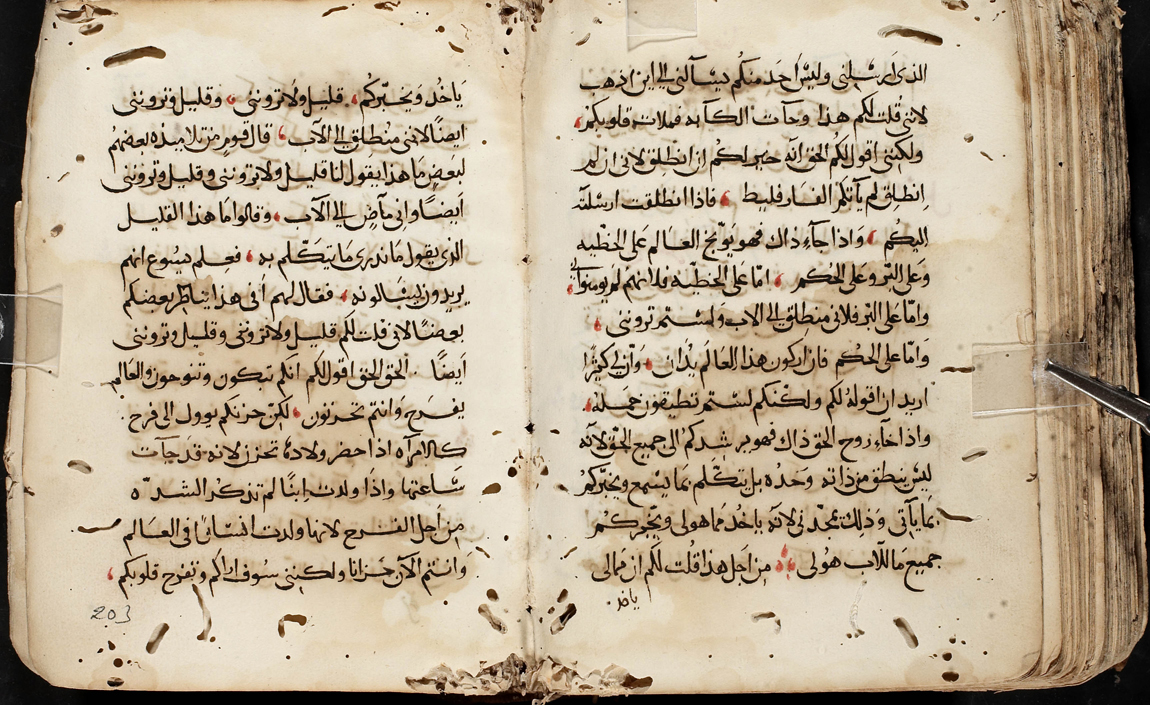 الذى ارسلنى وليس احد منكم يسآلنى الى اين اذهب
لانى قلت لكم هذا وجآت الكآبه فملات قلوبكم
ولكننى اقول لكم الحق انّه خير لكم ان انطلق لانى ان لم
انطلق لم يآتكم الفارقليط فاذا انطلقت ارسلته
اليكم واذا جآء ذاك فهو يوبّخ العالم على الخطيه
وعلى البرّ وعلى الحكم امّا على الخطيّه فلانهم لم يومنوا بى
وامّا على البر فلانى منطلق الى الاب ولستم ترونى
وامّا على الحكم فان اركون هذا العالم يُدان وانّ لى كثيرًا
اريد ان اقوله لكم ولكنكم لستم تطيقون حمله
واذا جاء روح الحق ذاك فهو يرشدكم الى جميع الحق لانّه
ليس ينطق من ذاته وحده بل يتكلّم بما يسمع ويخبّركم
بما يآتى وذلك يمجّدنى لانّه ياخُد مما هو لى ويخبركم
جميع ما للآب هو لى من اجل هذا قلت لكم ان ممالى
ياخد
ياخُد ويخبّركم قليل ولا ترونى وقليل وترونى
ايضًا لاننى منطلق الى الآب قال قوم من تلاميذه بعضهم
لبعض ما هذا يقول لنا قليل ولا ترونى وقليل وترونى
ايضًا وانى ماضٍ الى الآب وقالوا ما هذا القليل
الذى يقول ما ندرى ما يتكلّم به فعلم يسوع انهم
يريدون ليسالونه فقال لهم أفى هذا يناظر بعضكم
بعضًا لانى قلت لكم قليل ولا ترونى وقليل وترونى
ايضًا الحق الحق اقول لكم انكم تبكون وتنوحون والعالم
يفرح وانتم تحزنون لكن حزنكم يوول الى فرح
كالامرآه اذا حضر ولادها تحزن لانه قد جآت
ساعتها واذا ولدت ابنًا لم تذكر الشدّه
من اجل الفرح لانها ولدت انسانًا فى العالم
وانتم الآن حزانا ولكننى سوف اراكم وتفرح قلوبكم
203